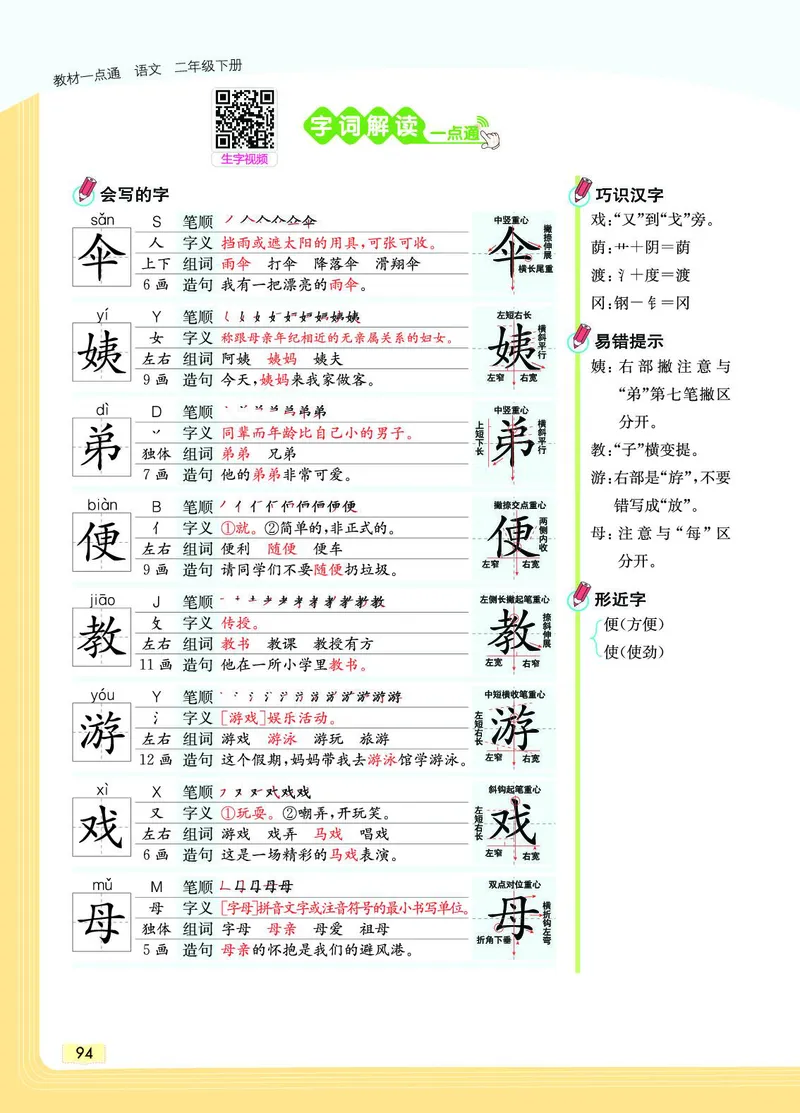 教材一点通 语文 二年级下册
字词解读 一点通
生字视频
会写的字
sǎn S 笔顺
伞 人 字义 挡雨或遮太阳的用具,可张可收。
上下 组词 雨伞 打伞 降落伞 滑翔伞
6画 造句 我有一把漂亮的雨伞。
中竖重心
撇捺伸展
伞
横长尾重
yí Y 笔顺
姨 女 字义 称跟母亲年纪相近的无亲属关系的妇女。
左右 组词 阿姨 姨妈 姨夫
9画 造句 今天,姨妈来我家做客。
左短右长
横斜平行
姨
左窄 右宽
dì D 笔顺
弟 丷 字义 同辈而年龄比自己小的男子。
独体 组词 弟弟 兄弟
7画 造句 他的弟弟非常可爱。
中竖重心
上短下长
弟
横斜平行
biàn B 笔顺
便 亻 字义 ①就。②简单的,非正式的。
左右 组词 便利 随便 便车
9画 造句 请同学们不要随便扔垃圾。
撇捺交点重心
两侧内收
便
左窄 右宽
jiāo J 笔顺
教 攵 字义 传授。
左右 组词 教书 教课 教授有方
11画 造句 他在一所小学里教书。
左侧长撇起笔重心
捺斜伸展
教
左宽 右窄
yóu Y 笔顺
游 氵 字义 [游戏]娱乐活动。
左右 组词 游戏 游泳 游玩 旅游
12画 造句 这个假期,妈妈带我去游泳馆学游泳。
中短横收笔重心
左短右长
游
左窄 右宽
xì X 笔顺
戏 又 字义 ①玩耍。②嘲弄,开玩笑。
左右 组词 游戏 戏弄 马戏 唱戏
6画 造句 这是一场精彩的马戏表演。
斜钩起笔重心
左短右长
戏
左窄 右宽
mǔ M 笔顺
母 母 字义 [字母]拼音文字或注音符号的最小书写单位。
独体 组词 字母 母亲 母爱 祖母
5画 造句 母亲的怀抱是我们的避风港。
双点对位重心
横折钩左弯
母
折角下垂
巧识汉字
戏:“又”到“戈”旁。
荫:艹+阴=荫
渡:氵+度=渡
冈:钢-钅=冈
易错提示
姨:右部撇注意与
“弟”第七笔撇区
分开。
教:“子”横变提。
游:右部是“斿”,不要
错写成“放”。
母:注意与“每”区
分开。
形近字
便(方便)
使(使劲)
94